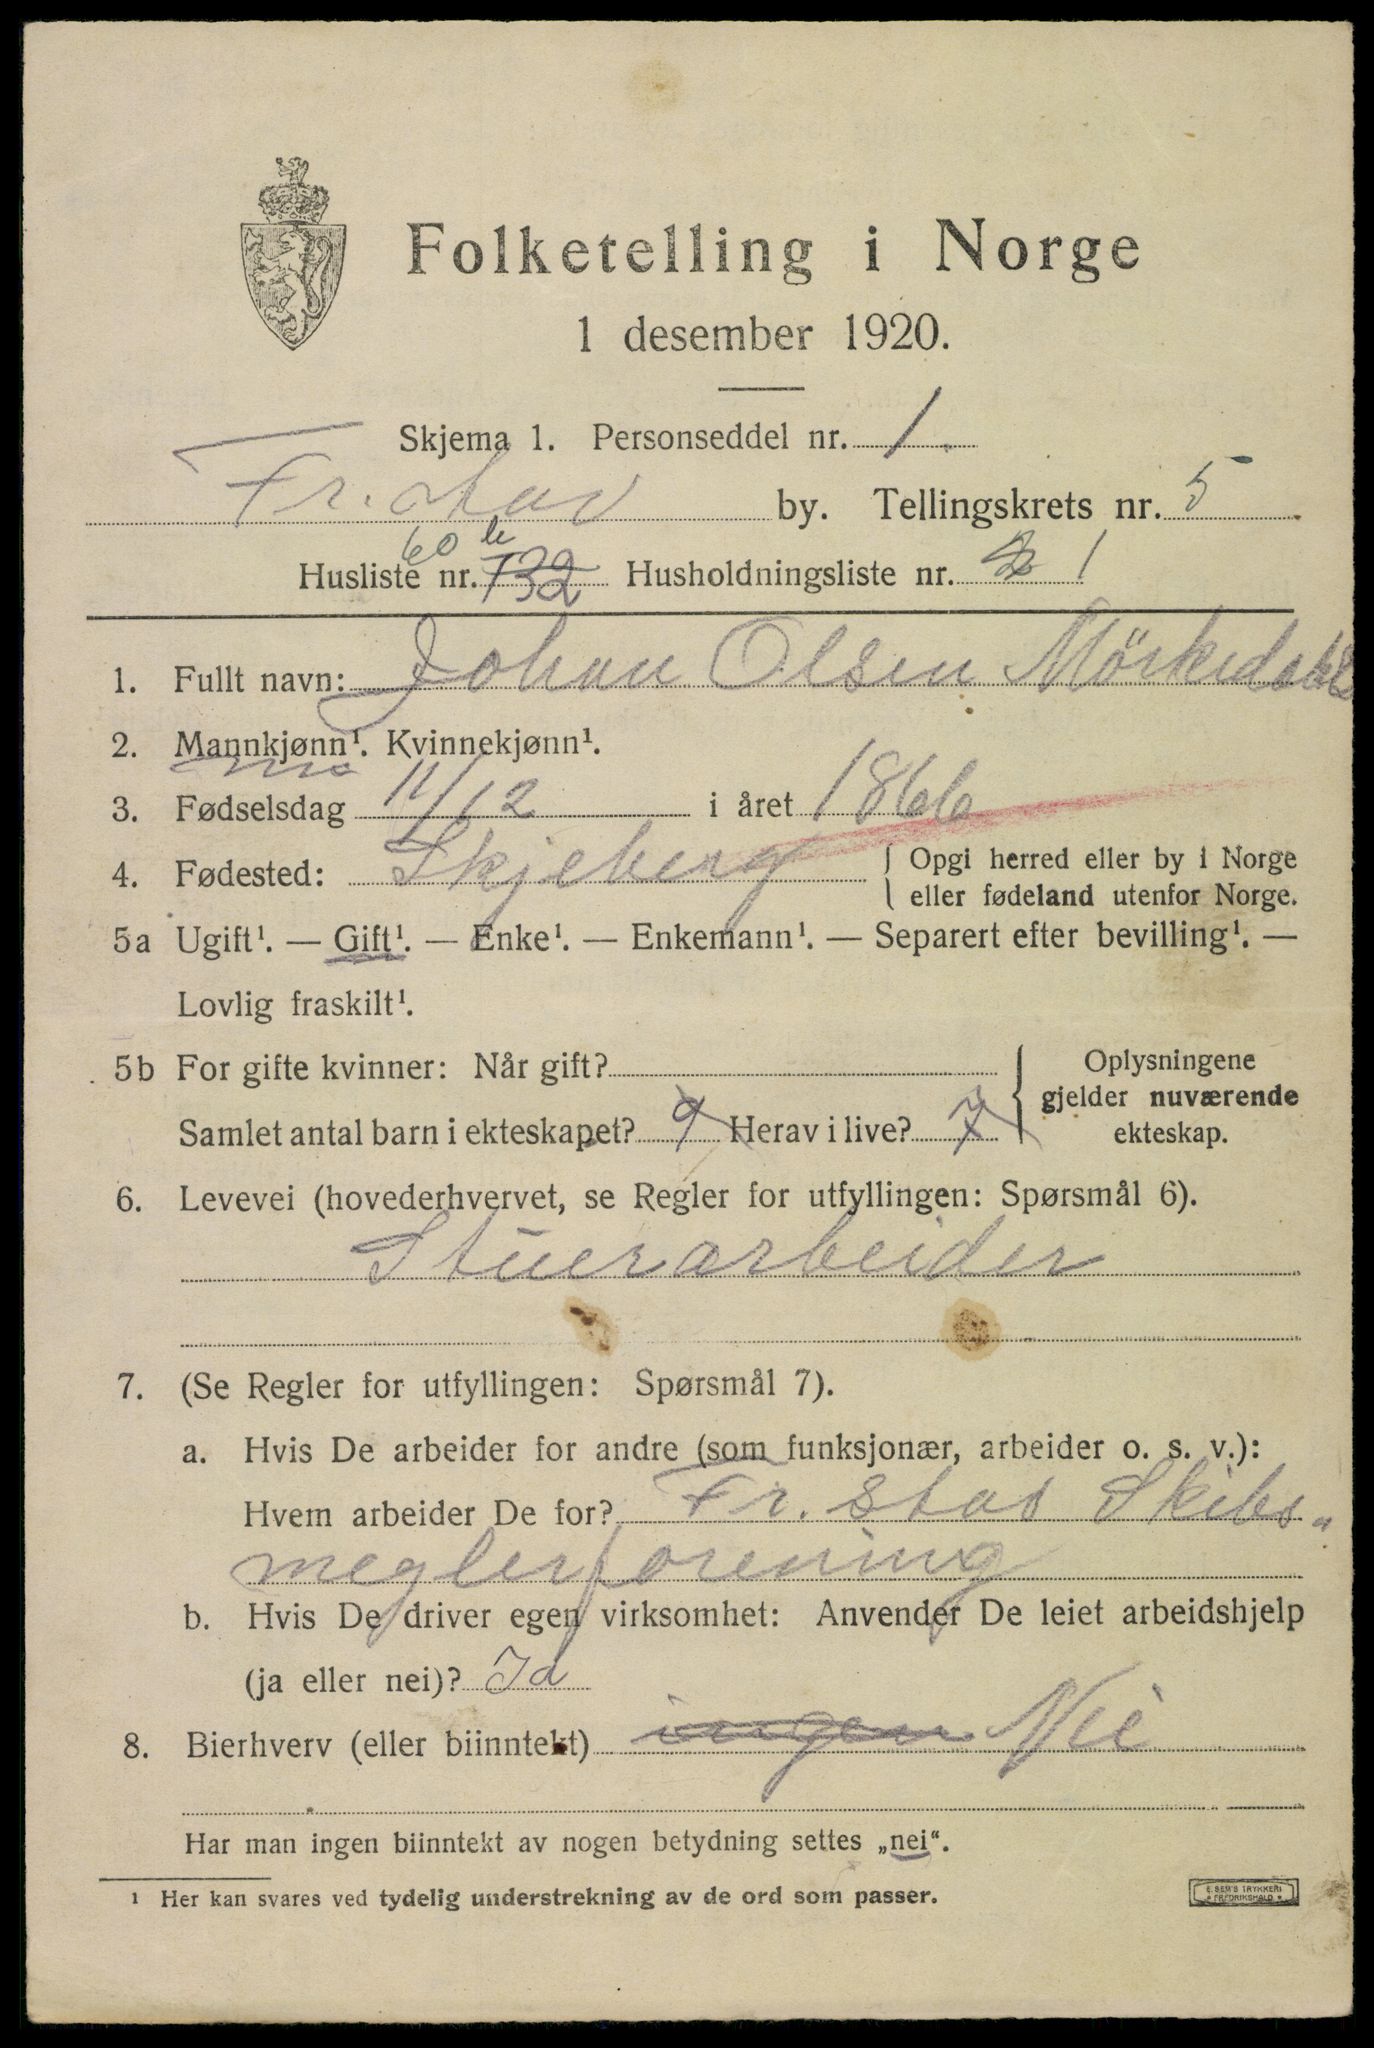 Folketelling i Norge
1 desember 1920.
Skjema 1. Personseddel nr. 1.
Fr.stad by. Tellingskrets nr. 5
60 b
Husliste nr. 732 Husholdningsliste nr. 1
1. Fullt navn: Johan Olsen
2. Mannkjønn¹. Kvinnekjønn¹.
3. Fødselsdag 11/12 i året 1866
4. Fødested: Skjeberg { Opgi herred eller by i Norge
eller fødeland utenfor Norge.
5a Ugift¹. — Gift¹. — Enke¹. — Enkemann¹. — Separert efter bevilling¹. —
Lovlig fraskilt¹.
5b For gifte kvinner: Når gift? { Oplysningene
gjelder nuværende
ekteskap.
Samlet antal barn i ekteskapet? 9 Herav i live? 7
6. Levevei (hovederhvervet, se Regler for utfyllingen: Spørsmål 6).
Stuerarbeider
7. (Se Regler for utfyllingen: Spørsmål 7).
a. Hvis De arbeider for andre (som funksjonær, arbeider o. s. v.):
Hvem arbeider De for? Fr.stad Skibs„
meglerforening
b. Hvis De driver egen virksomhet: Anvender De leiet arbeidshjelp
(ja eller nei)? Ja
8. Bierhverv (eller biinntekt) ingen Nei
Har man ingen biinntekt av nogen betydning settes „nei“.
¹ Her kan svares ved tydelig understrekning av de ord som passer.
E. SEM'S TRYKKERI
FREDRIKSHALD